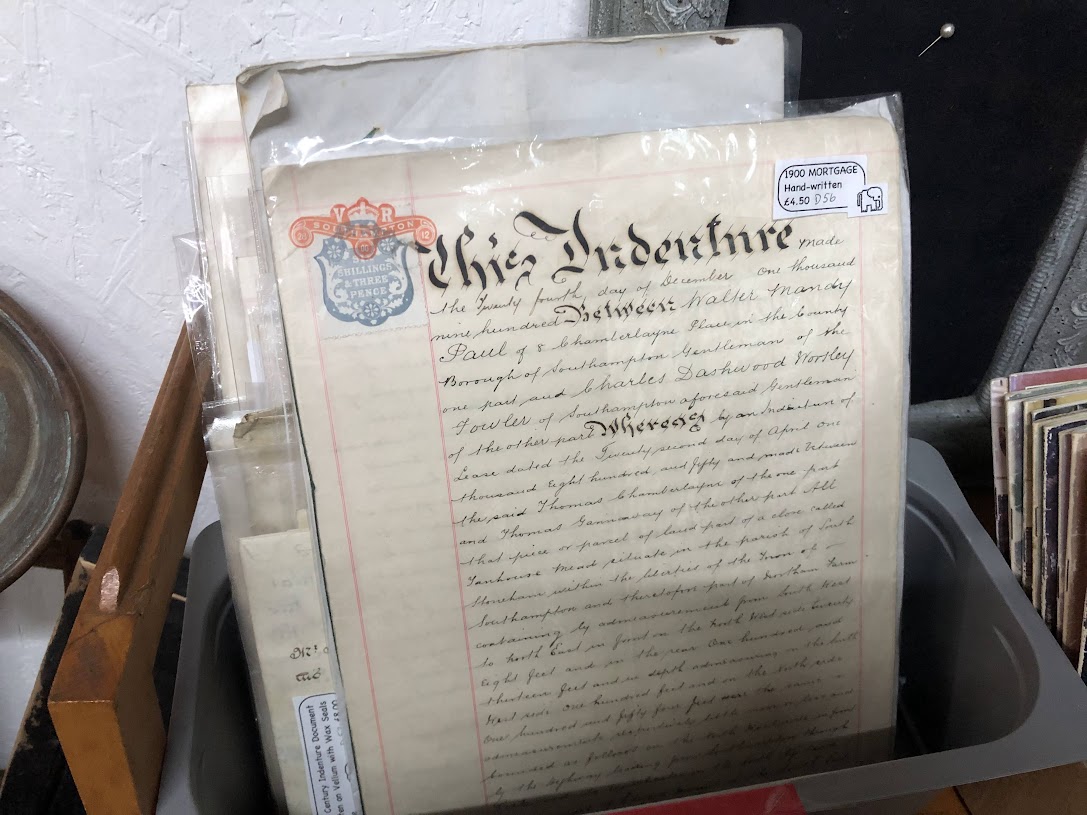 1900 MORTGAGE
Hand-written
£4.50 D56
V R
SOUTHAMPTON
SIX
SHILLINGS
& THREE
PENCE
This Indenture made
the Twenty fourth day of December One thousand
nine hundred Between Walter Mandy
Paul of 8 Chamberlayne Place in the County
Borough of Southampton Gentleman of the
one part and Charles Dashwood Worsley
Fowler of Southampton aforesaid Gentleman
of the other part Whereas by an Indenture of
Lease dated the Twenty second day of April One
thousand Eight hundred and fifty and made between
the said Thomas Chamberlayne of the one part
and Thomas Gannaway of the other part All
that piece or parcel of land part of a close called
Tanhouse Mead situate in the parish of South
Stoneham within the liberties of the Town of
Southampton and theretofore part of Northam Farm
containing by admeasurement from South West
to North East in front on the North West side Twenty
Eight feet and in the rear One hundred and
thirteen feet and in depth admeasuring on the South
West side One hundred feet and on the North side
One hundred and fifty four feet
Century Indenture Document
on Vellum with Wax Seals
£8.00